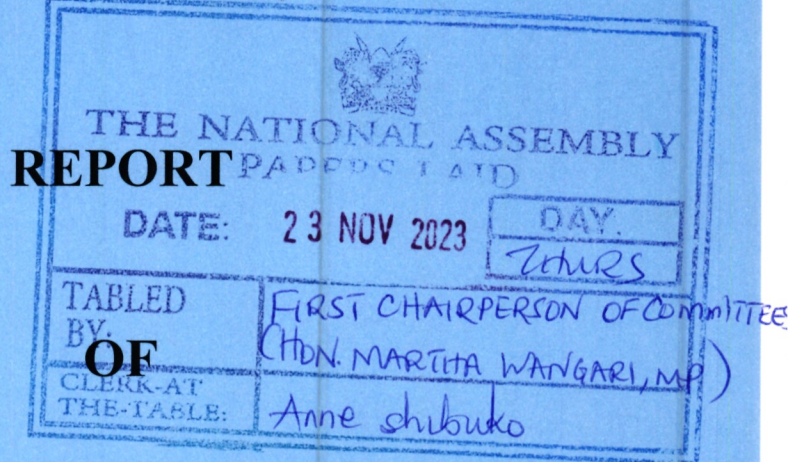 THE NATIONAL ASSEMBLY
REPORT
PAPERS LAID
DATE: 23 NOV 2023
DAY.
THURS
TABLED BY:
FIRST CHAIRPERSON OF COMMITTEES
(HON. MARTHA WANGARI, MP)
OF
CLERK-AT THE-TABLE:
Anne Shibuko